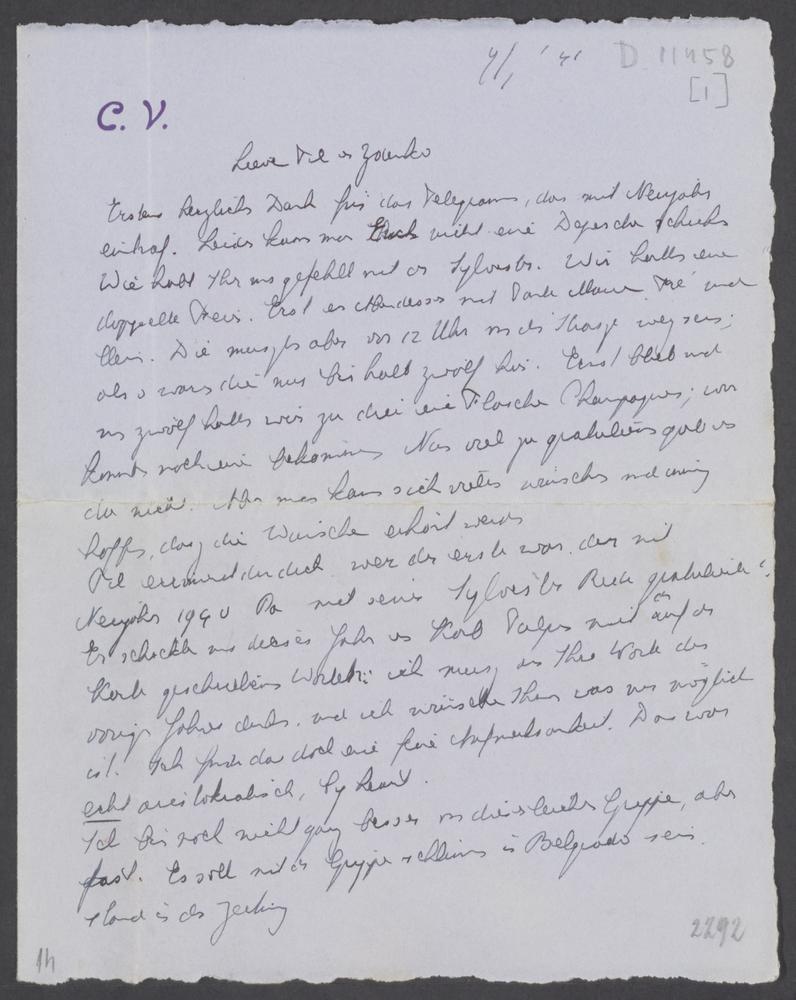 4/1 '41 D 11458
[1]
C. V.
Lieve Til en Zdenko
Erstens herzlichs Dank für das Telegramm, das mit Neujahr
eintraf. Leider kann man Euch nicht eine Depesche schicken
Wie habt Ihr uns gefehlt mit Sylvester. Wir hatten eine
doppelte Freis. Erst Abendessen mit Tante Marie und
Ellen. Die mussten aber vor 12 Uhr von der Strasse weg sein;
also waren die nur bis halb zwölf hier. Ernst blieb und
um zwölf hatten wir zu drei eine Flasche Champagner; wir
konnten noch eine bekommen. Nur viel zu gratulieren gab es
da nicht. Aber man kann sich vieles wünschen und innig
hoffen, dass die Wünsche erhört werden
Til erinnerst du dich wer der erste war, der mit
Neujahr 1940 Pa mit seiner Sylvester Rede gratulierte?
Er schickte uns dieses Jahr ein Korb Tulpen mit auf der
Karte geschriebene Worte: ich muss an Ihre Worte des
vorigen Jahres denken und ich wünsche Ihnen was nur möglich
ist. Ich finde das doch eine feine Aufmerksamkeit. Das war
echt aristokratisch,
Ich bin noch nicht ganz besser von dieser leichten Grippe, aber
fast. Es soll mit der Grippe schlimm in Belgrado sein.
stand in der Zeitung
14 2292